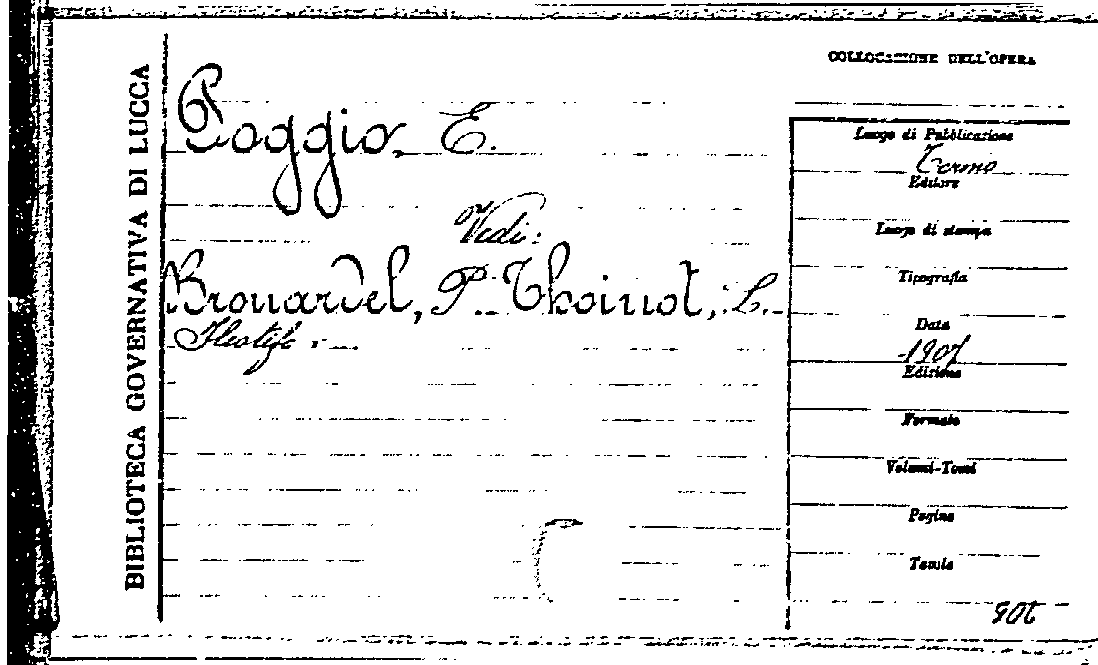 BIBLIOTECA GOVERNATIVA DI LUCCA
Poggio, E.
Vedi:
Brouardel, P. Thoinot, L.
COLLOCAZIONE DELL'OPERA
Luogo di Pubblicazione
Editore
Luogo di stampa
Tipografia
Data
Edizione
Formato
Volumi-Tomi
Pagine
Tavole